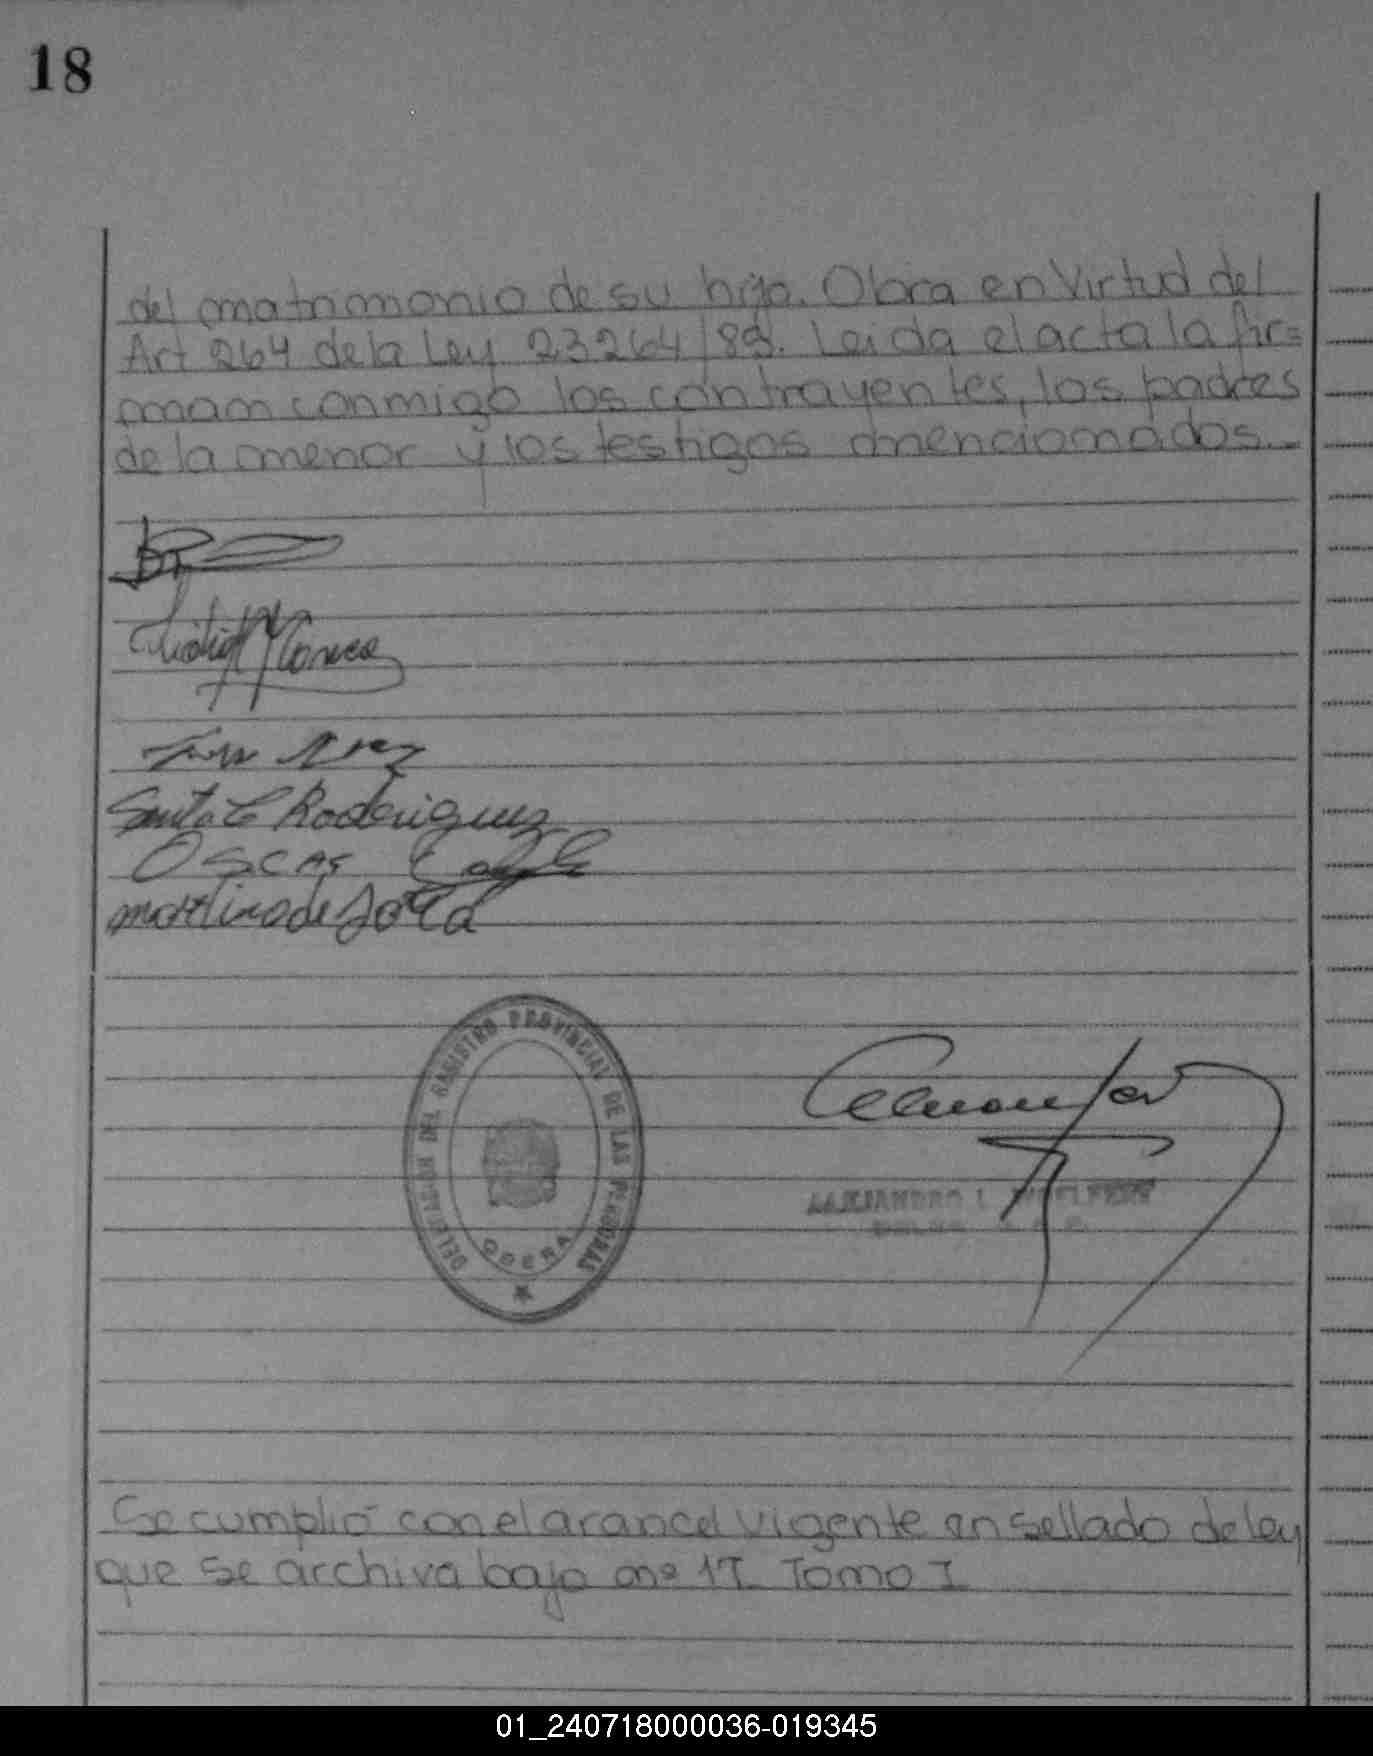 18
del matrimonio de su hija. Obra en Virtud del
Art 264 de la Ley 23264/85. Leida el acta la fir=
man conmigo los contrayentes, los padres
de la menor y los testigos mencionados.
Santa C Roderiguez
OSCAR
DELEGACION DEL REGISTRO PROVINCIAL DE LAS PERSONAS
OBERA
ALEJANDRO L.
Se cumplió con el arancel vigente en sellado de ley
que se archiva bajo nº 17 Tomo I
01_240718000036-019345